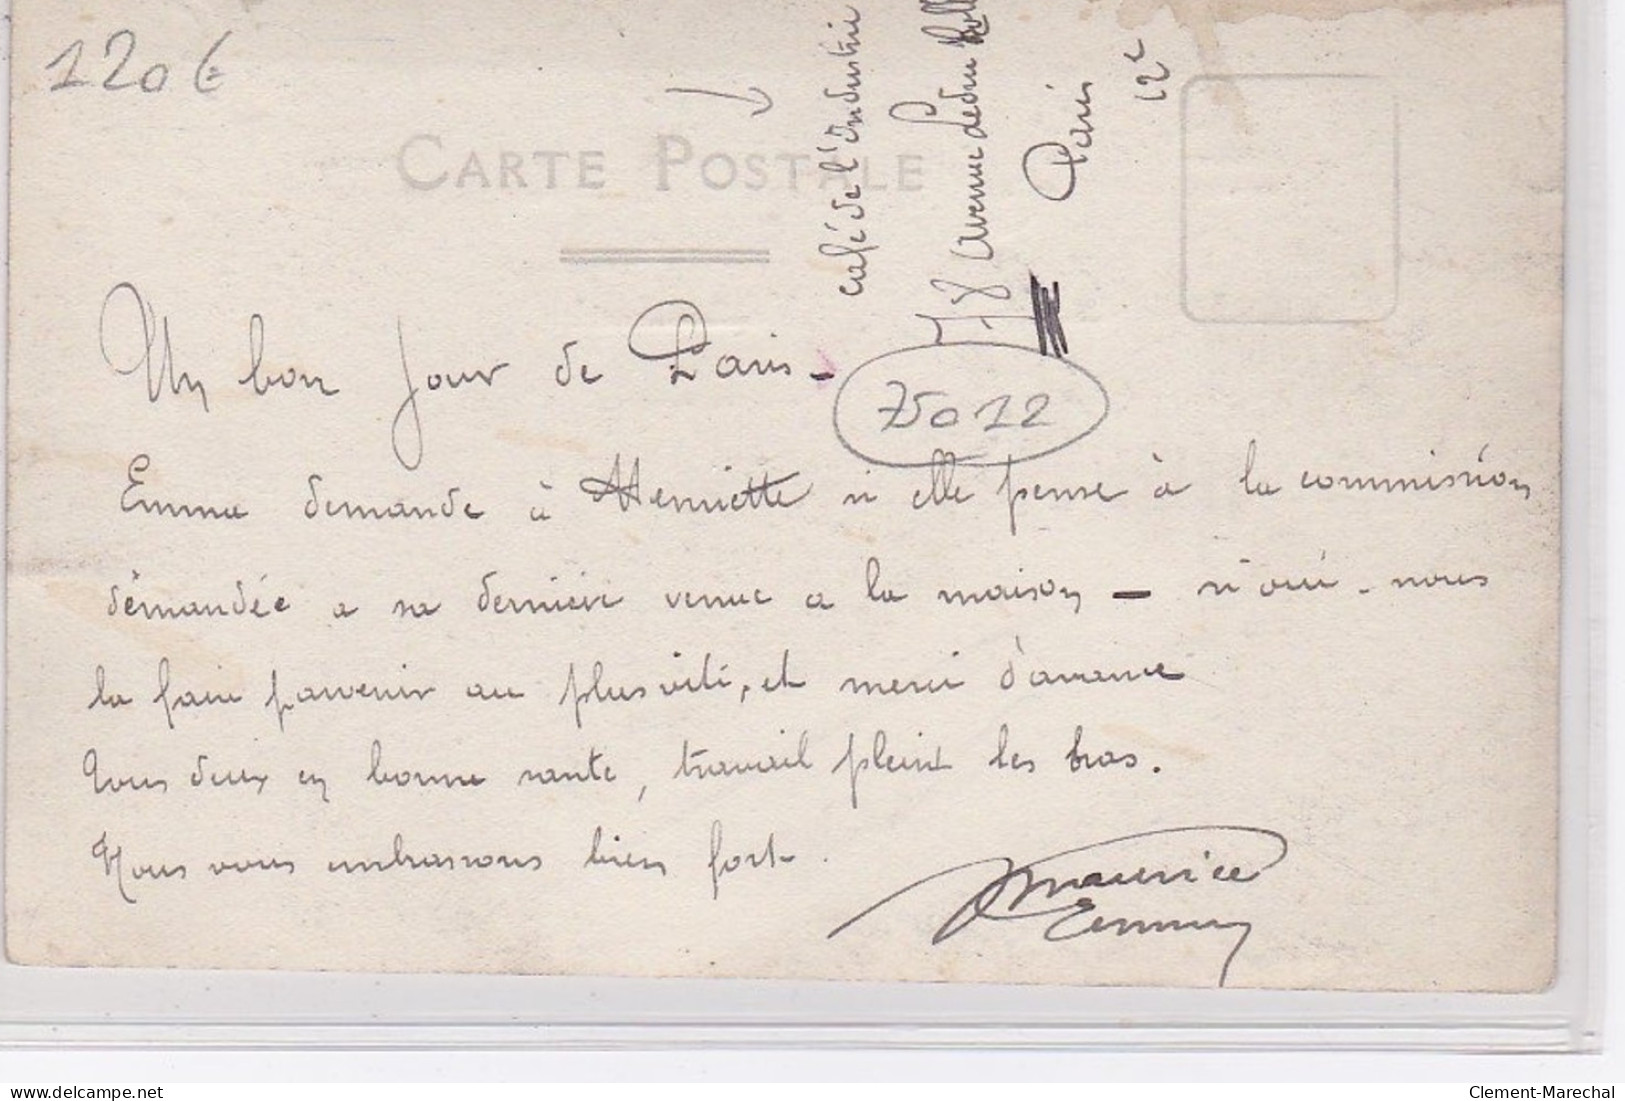 120 €
CARTE POSTALE
café de l'Industri
78 avenue Ledru Roll
Paris
12e
75012
Un bon jour de Paris -
Emma demande à Henriette si elle pense à la commission
demandée a sa dernière venue a la maison — si oui - nous
la faire parvenir au plus vite, et merci d'avance
Tous deux en bonne sante, travail pleint les bras.
Nous vous embrassons bien fort.
Maurice
Emma
delcampe.net
Clement-Marechal